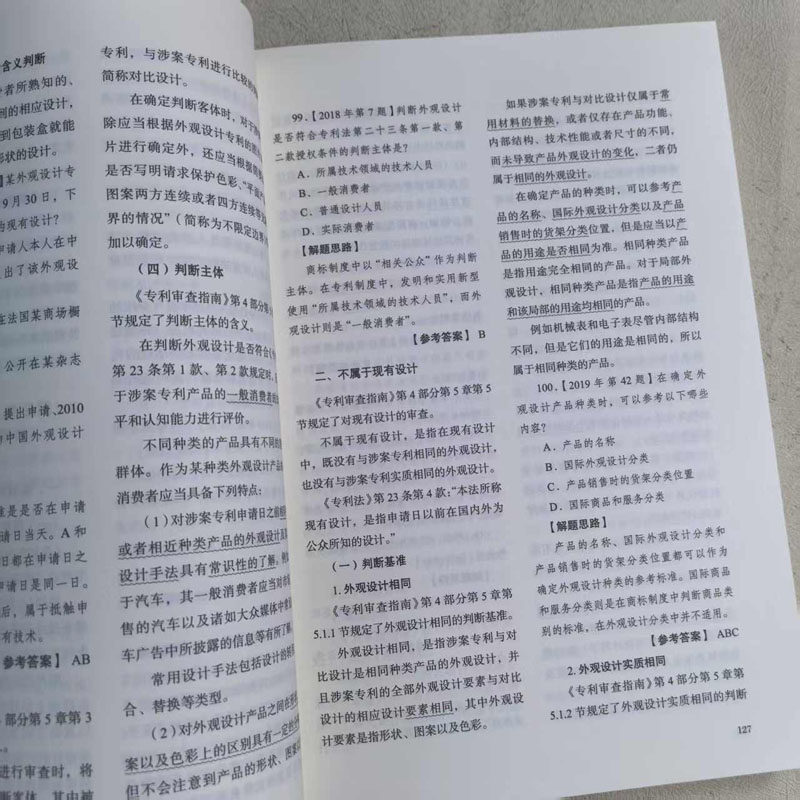 含义判断
者所熟知的、
到的相应设计，
到包装盒就能
形状的设计。
】某外观设计专
9月30日，下
的现有设计？
申请人本人在中
出了该外观设
在法国某商场橱
公开在某杂志
提出申请、2010
的中国外观设计
是是否在申请
请日当天。A 和
日都在申请日之
请日是同一日。
后，属于抵触申
有技术。
参考答案】 AB
4部分第5章第3
进行审查时，将
专利，与涉案专利进行比较的
简称对比设计。
在确定判断客体时，对于
除应当根据外观设计专利的图
片进行确定外，还应当根据简
是否写明请求保护色彩、“平面
图案两方连续或者四方连续等
界的情况”（简称为不限定边界
加以确定。
（四）判断主体
《专利审查指南》第4部分第5
节规定了判断主体的含义。
在判断外观设计是否符合《
第23条第1款、第2款规定时，
于涉案专利产品的一般消费者的
平和认知能力进行评价。
不同种类的产品具有不同的
群体。作为某种类外观设计产品
消费者应当具备下列特点：
（1）对涉案专利申请日之前相
或者相近种类产品的外观设计
设计手法具有常识性的了解。例
于汽车，其一般消费者应当对市
售的汽车以及诸如大众媒体中常
车广告中所披露的信息等有所了解
常用设计手法包括设计的转
合、替换等类型。
（2）对外观设计产品之间在形
案以及色彩上的区别具有一定的
但不会注意到产品的形状、图案以
99.【2018年第7题】判断外观设计
是否符合专利法第二十三条第一款、第
二款授权条件的判断主体是？
A. 所属技术领域的技术人员
B. 一般消费者
C. 普通设计人员
D. 实际消费者
【解题思路】
商标制度中以“相关公众”作为判断
主体。在专利制度中，发明和实用新型
使用“所属技术领域的技术人员”，而外
观设计则是“一般消费者”。
【参考答案】 B
二、不属于现有设计
《专利审查指南》第4部分第5章第5
节规定了对现有设计的审查。
不属于现有设计，是指在现有设计
中，既没有与涉案专利相同的外观设计，
也没有与涉案专利实质相同的外观设计。
《专利法》第23条第4款：“本法所称
现有设计，是指申请日以前在国内外为
公众所知的设计。”
（一）判断基准
1. 外观设计相同
《专利审查指南》第4部分第5章第
5.1.1节规定了外观设计相同的判断基准。
外观设计相同，是指涉案专利与对
比设计是相同种类产品的外观设计，并
且涉案专利的全部外观设计要素与对比
设计的相应设计要素相同，其中外观设
计要素是指形状、图案以及色彩。
如果涉案专利与对比设计仅属于常
用材料的替换，或者仅存在产品功能、
内部结构、技术性能或者尺寸的不同，
而未导致产品外观设计的变化，二者仍
属于相同的外观设计。
在确定产品的种类时，可以参考产
品的名称、国际外观设计分类以及产品
销售时的货架分类位置，但是应当以产
品的用途是否相同为准。相同种类产品
是指用途完全相同的产品。对于局部外
观设计，相同种类产品是指产品的用途
和该局部的用途均相同的产品。
例如机械表和电子表尽管内部结构
不同，但是它们的用途是相同的，所以
属于相同种类的产品。
100.【2019年第42题】在确定外
观设计产品种类时，可以参考以下哪些
内容？
A. 产品的名称
B. 国际外观设计分类
C. 产品销售时的货架分类位置
D. 国际商品和服务分类
【解题思路】
产品的名称、国际外观设计分类和
产品销售时的货架分类位置都可以作为
确定外观设计种类的参考标准。国际商品
和服务分类则是在商标制度中判断商品类
别的标准，在外观设计分类中并不适用。
【参考答案】 ABC
2. 外观设计实质相同
《专利审查指南》第4部分第5章第
5.1.2节规定了外观设计实质相同的判断
127